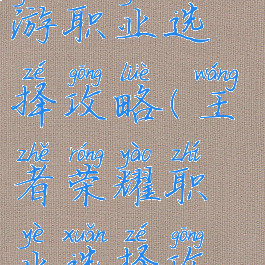 游职业选
zé gōng lüè wáng
择攻略(王
zhě róng yào zhí
者荣耀职
yè xuǎn zé gōng
业选择攻